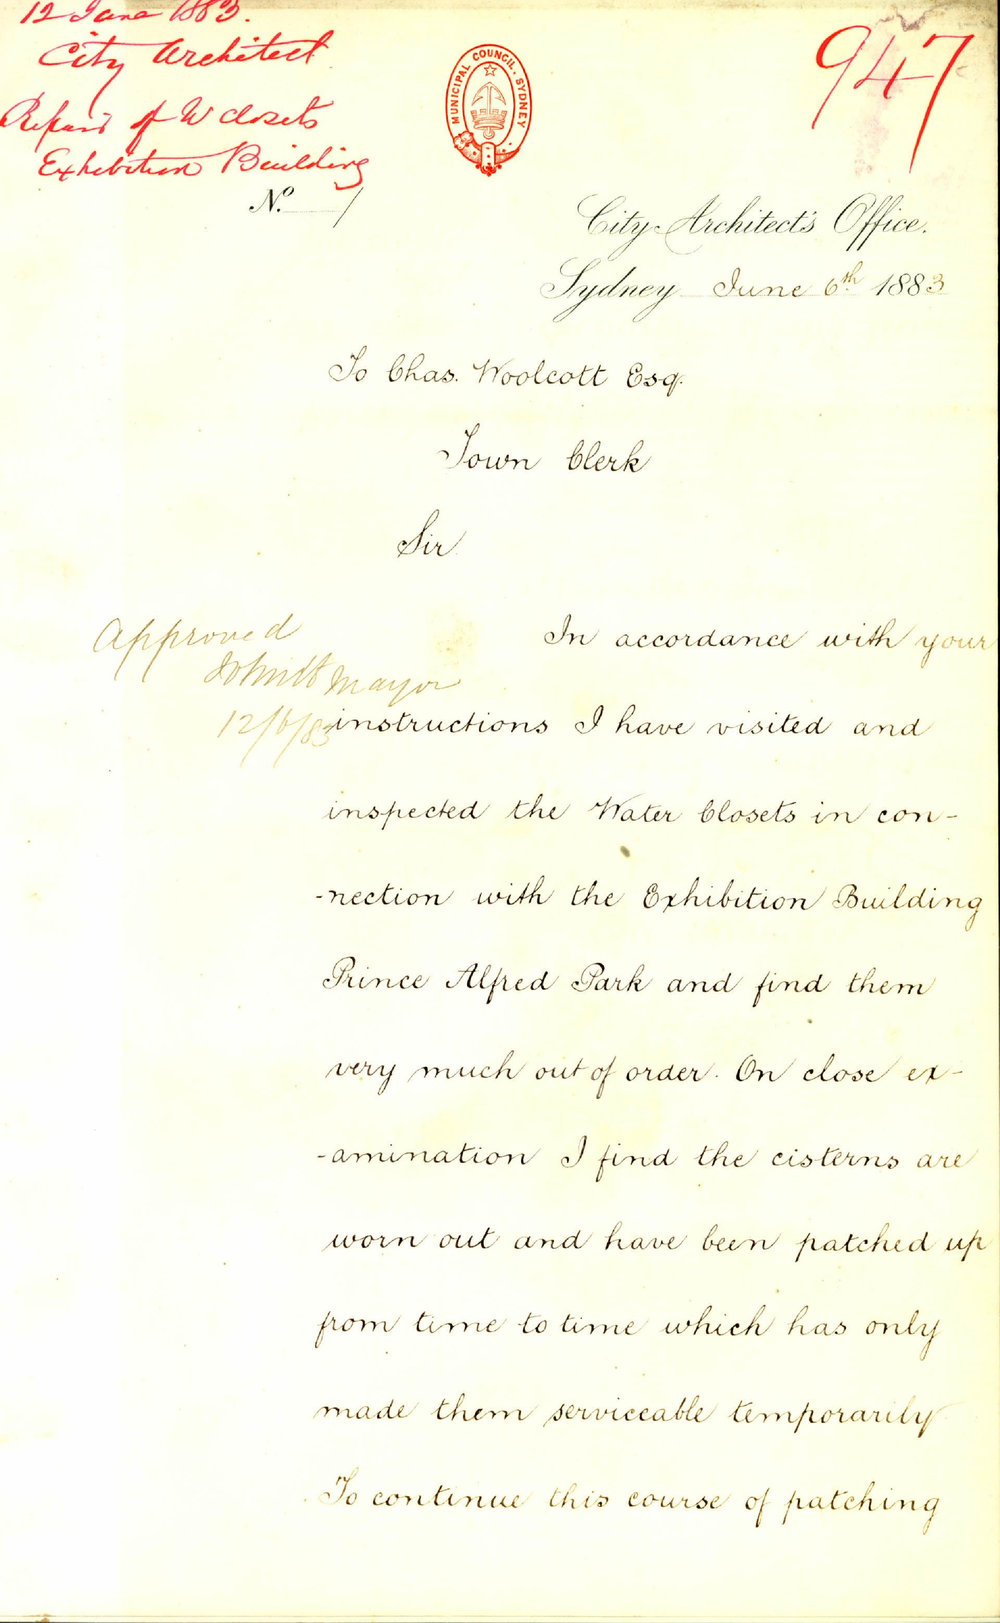 12 June 1883.
City Architect
Repairs of W Closets
Exhibition Building
947
MUNICIPAL COUNCIL, SYDNEY
No. /
City Architect's Office.
Sydney June 6th 1883
To Chas. Woolcott Esq.
Town Clerk
Sir
Approved
Mayor
12/6/83
In accordance with your
instructions I have visited and
inspected the Water Closets in con-
-nection with the Exhibition Building
Prince Alfred Park and find them
very much out of order. On close ex-
-amination I find the cisterns are
worn out and have been patched up
from time to time which has only
made them serviceable temporarily
To continue this course of patching